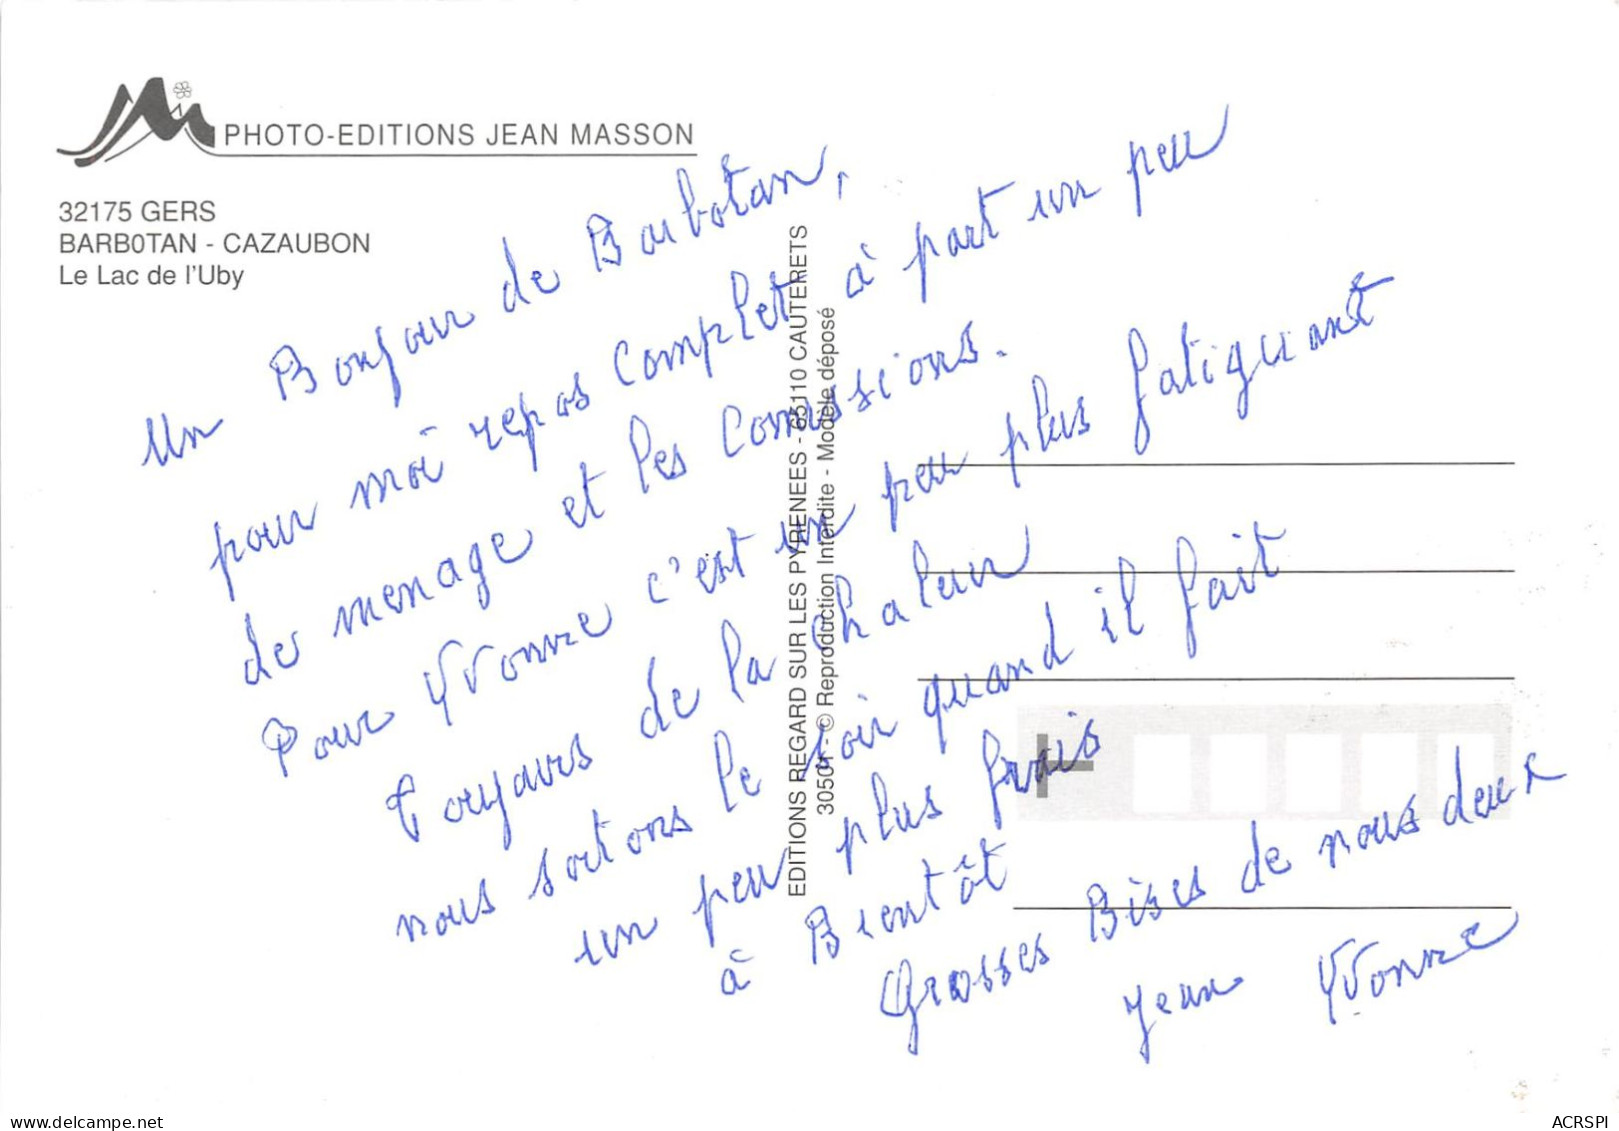 PHOTO-EDITIONS JEAN MASSON
32175 GERS
BARBOTAN - CAZAUBON
Le Lac de l'Uby
Un Bonjour de Barbotan,
pour moi repas Complet à part un peu
de menage et les Comissions.
Pour Yvonne c'est un peu plus fatiguant
Toujours de la Chaleur
nous sortons le soir quand il fait
un peu plus frais
à Bientôt
Grosses Bises de nous deux
Jean Yvonne
EDITIONS REGARD SUR LES PYRENEES - 65110 CAUTERETS
30501 - © Reproduction Interdite - Modèle déposé
delcampe.net
ACRSPI